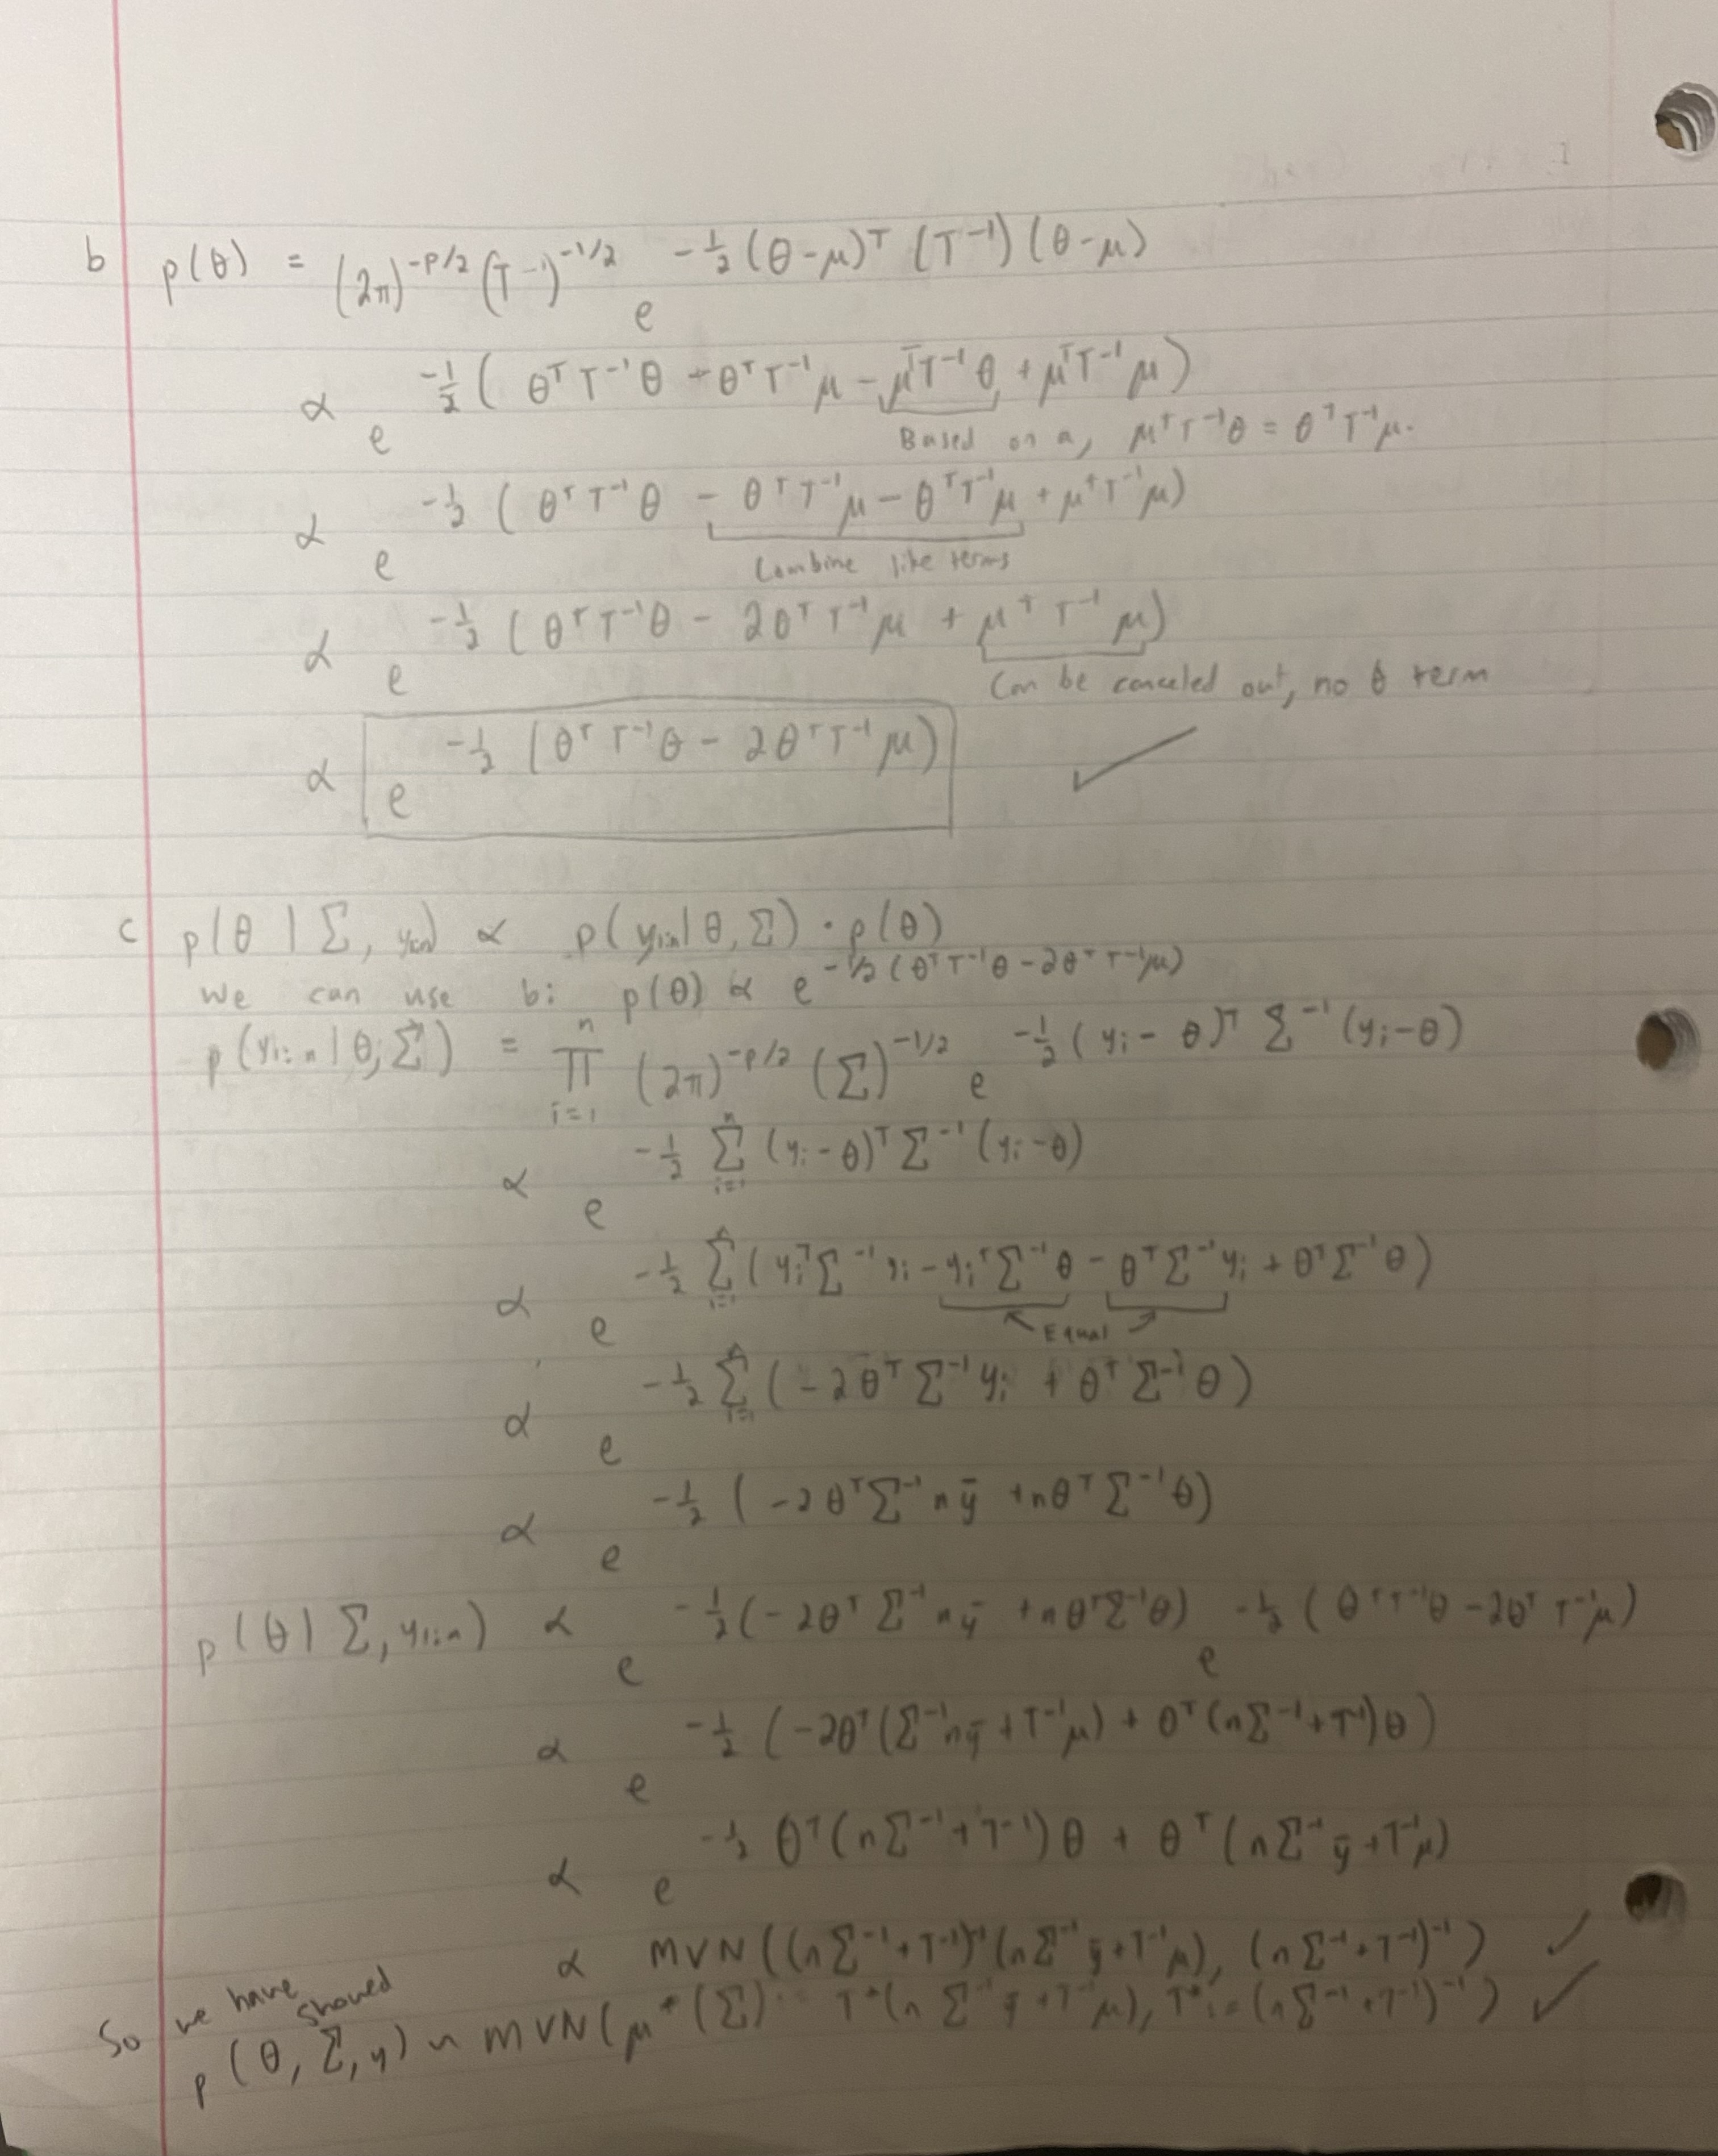 b p(θ) = (2π)^{-p/2} (T^{-1})^{-1/2} e^{-½ (θ-μ)^T (T^{-1}) (θ-μ)}
∝ e^{-½ ( θ^T T^{-1} θ - θ^T T^{-1} μ - μ^T T^{-1} θ + μ^T T^{-1} μ )}
Based on a, μ^T T^{-1} θ = θ^T T^{-1} μ.
∝ e^{-½ ( θ^T T^{-1} θ - θ^T T^{-1} μ - θ^T T^{-1} μ + μ^T T^{-1} μ )}
Combine like terms
∝ e^{-½ ( θ^T T^{-1} θ - 2θ^T T^{-1} μ + μ^T T^{-1} μ )}
Can be canceled out, no θ term
∝ e^{-½ ( θ^T T^{-1} θ - 2θ^T T^{-1} μ )} ✓
c p(θ | Σ, y_{1:n}) ∝ p(y_{1:n} | θ, Σ) · p(θ)
we can use b: p(θ) ∝ e^{-1/2 (θ^T T^{-1} θ - 2θ^T T^{-1} μ)}
p(y_{1:n} | θ, Σ) = ∏_{i=1}^{n} (2π)^{-p/2} (Σ)^{-1/2} e^{-½ (y_i - θ)^T Σ^{-1} (y_i - θ)}
∝ e^{-½ Σ_{i=1}^{n} (y_i - θ)^T Σ^{-1} (y_i - θ)}
∝ e^{-½ Σ_{i=1}^{n} ( y_i^T Σ^{-1} y_i - y_i^T Σ^{-1} θ - θ^T Σ^{-1} y_i + θ^T Σ^{-1} θ )}
Equal
∝ e^{-½ Σ_{i=1}^{n} ( -2θ^T Σ^{-1} y_i + θ^T Σ^{-1} θ )}
∝ e^{-½ ( -2θ^T Σ^{-1} nȳ + nθ^T Σ^{-1} θ )}
p(θ | Σ, y_{1:n}) ∝ e^{-½ (-2θ^T Σ^{-1} nȳ + nθ^T Σ^{-1} θ)} e^{-½ ( θ^T T^{-1} θ - 2θ^T T^{-1} μ )}
∝ e^{-½ ( -2θ^T (Σ^{-1} nȳ + T^{-1} μ) + θ^T (nΣ^{-1} + T^{-1}) θ )}
∝ e^{-½ θ^T (nΣ^{-1} + T^{-1}) θ + θ^T (nΣ^{-1} ȳ + T^{-1} μ)}
∝ MVN((nΣ^{-1} + T^{-1})^{-1} (nΣ^{-1} ȳ + T^{-1} μ), (nΣ^{-1} + T^{-1})^{-1}) ✓
So we have showed
p(θ, Σ, y) ~ MVN(μ*(Σ) := T*(nΣ^{-1} ȳ + T^{-1} μ), T* := (nΣ^{-1} + T^{-1})^{-1}) ✓